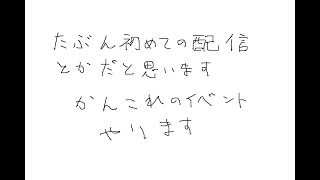 たぶん初めての配信
とかだと思います
かんこれのイベント
やります